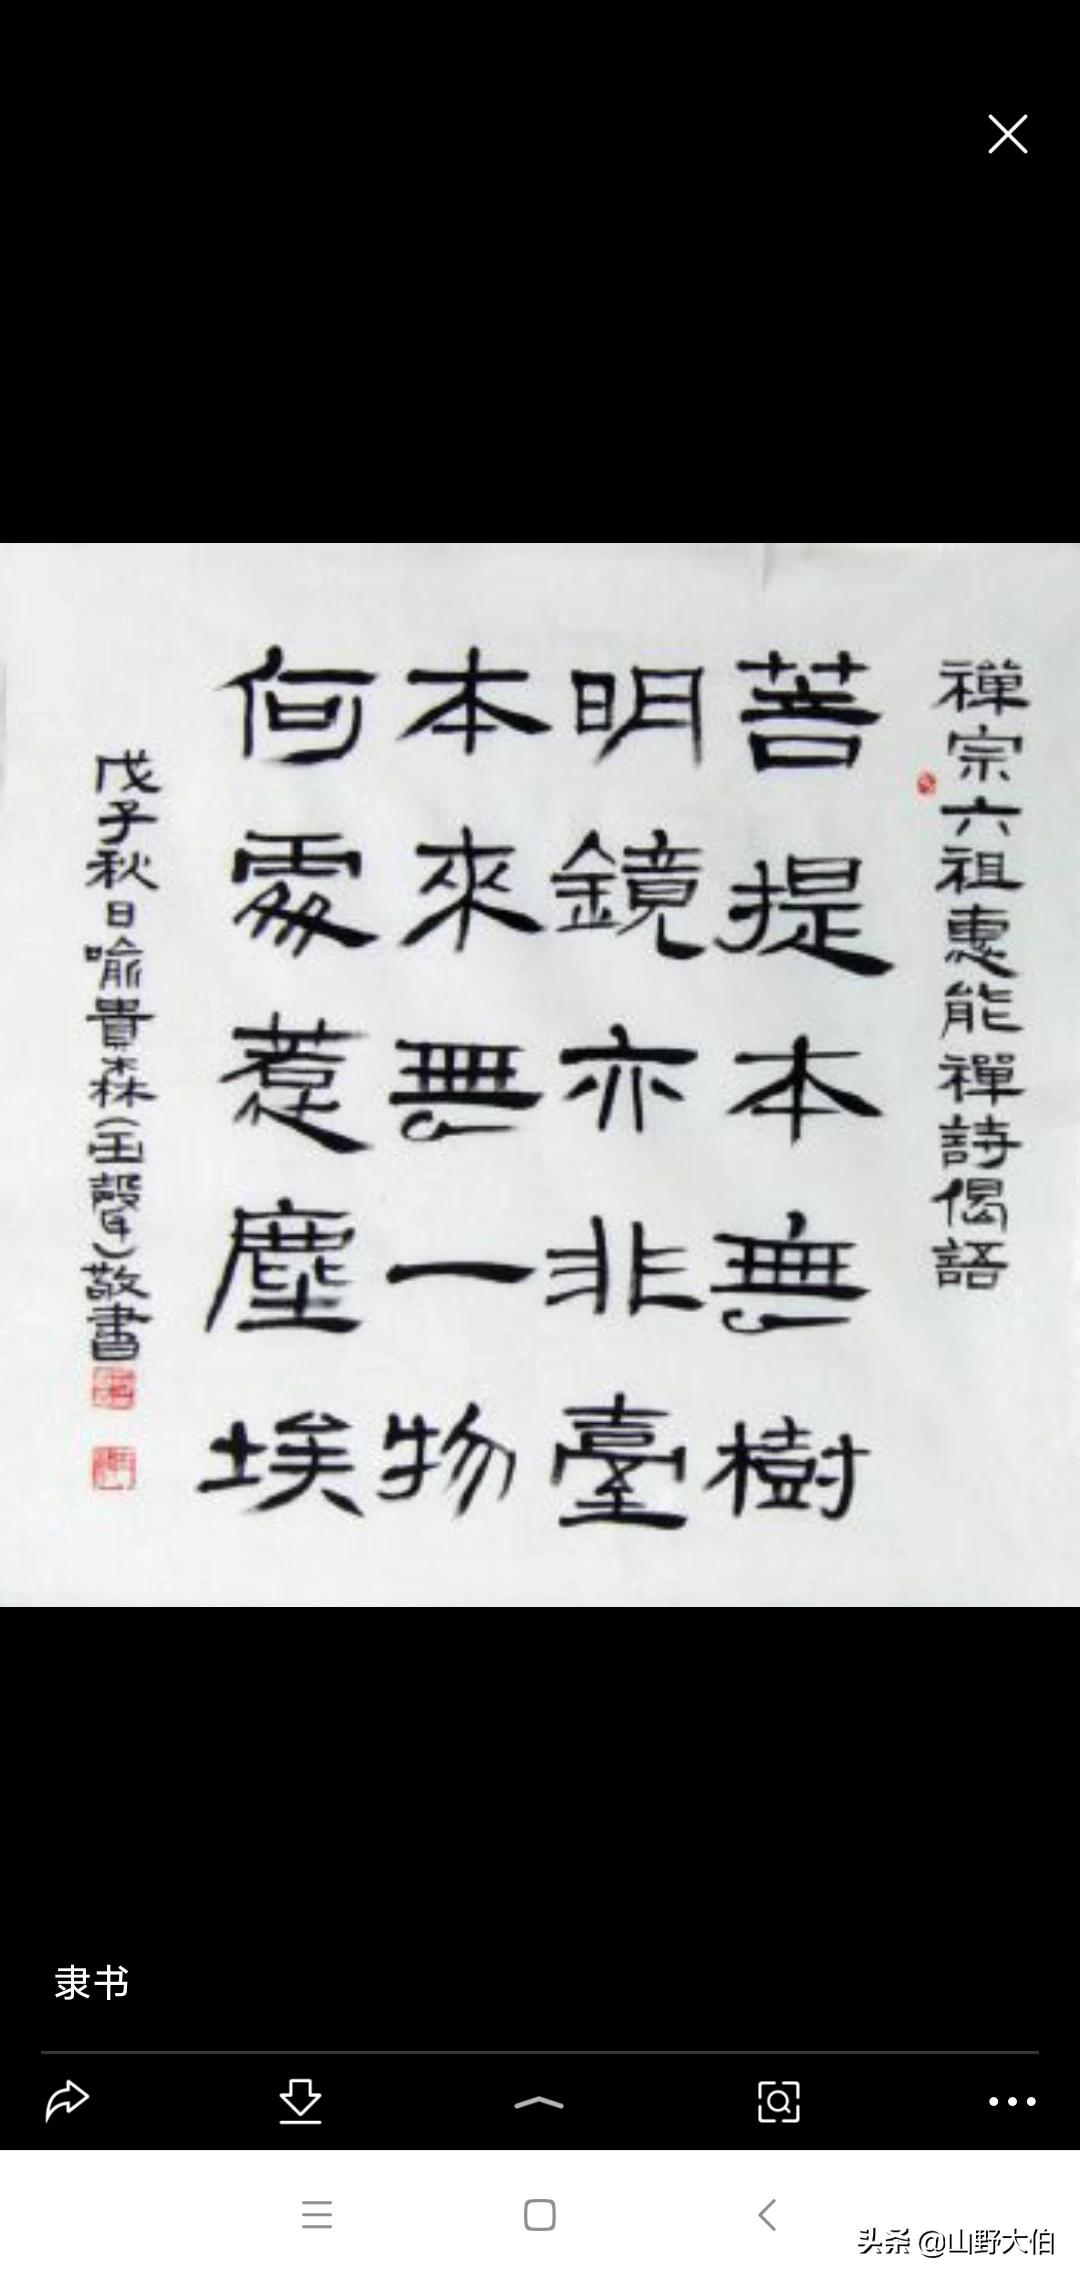 禪宗六祖惠能禪詩偈語
菩提本無樹
明鏡亦非臺
本來無一物
何處惹塵埃
戊子秋日喻貴森(玉聲)敬書
隶书
头条 @山野大伯